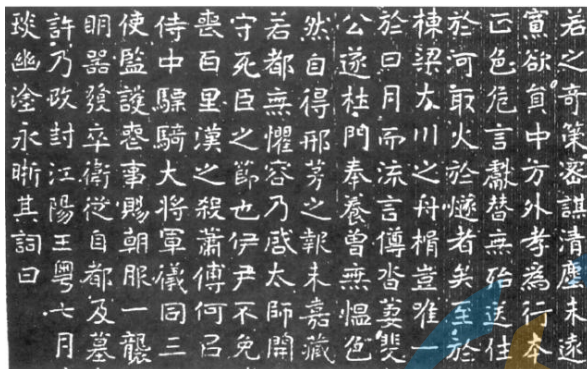 若之奇策密謀清塵未遠
寅欲貟中方外考為行本
正色危言獻替無殆送往
於河取火於燧者矣至於
棟梁大川之舟楫豈唯一
於日月而流言僔沓萋斐
公遂杜門奉養曾無慍色
然自得邢茅之報未嘉藏
若都無懼容乃啟太師開
守死臣之節也伊尹不免
喪百里漢之殺蕭傅何以
侍中驃騎大將軍儀同三
使監護喪事賜朝服一襲
明器發卒衛從自都及墓
許乃改封江陽王粵七月
琰幽塗永晣其詞曰